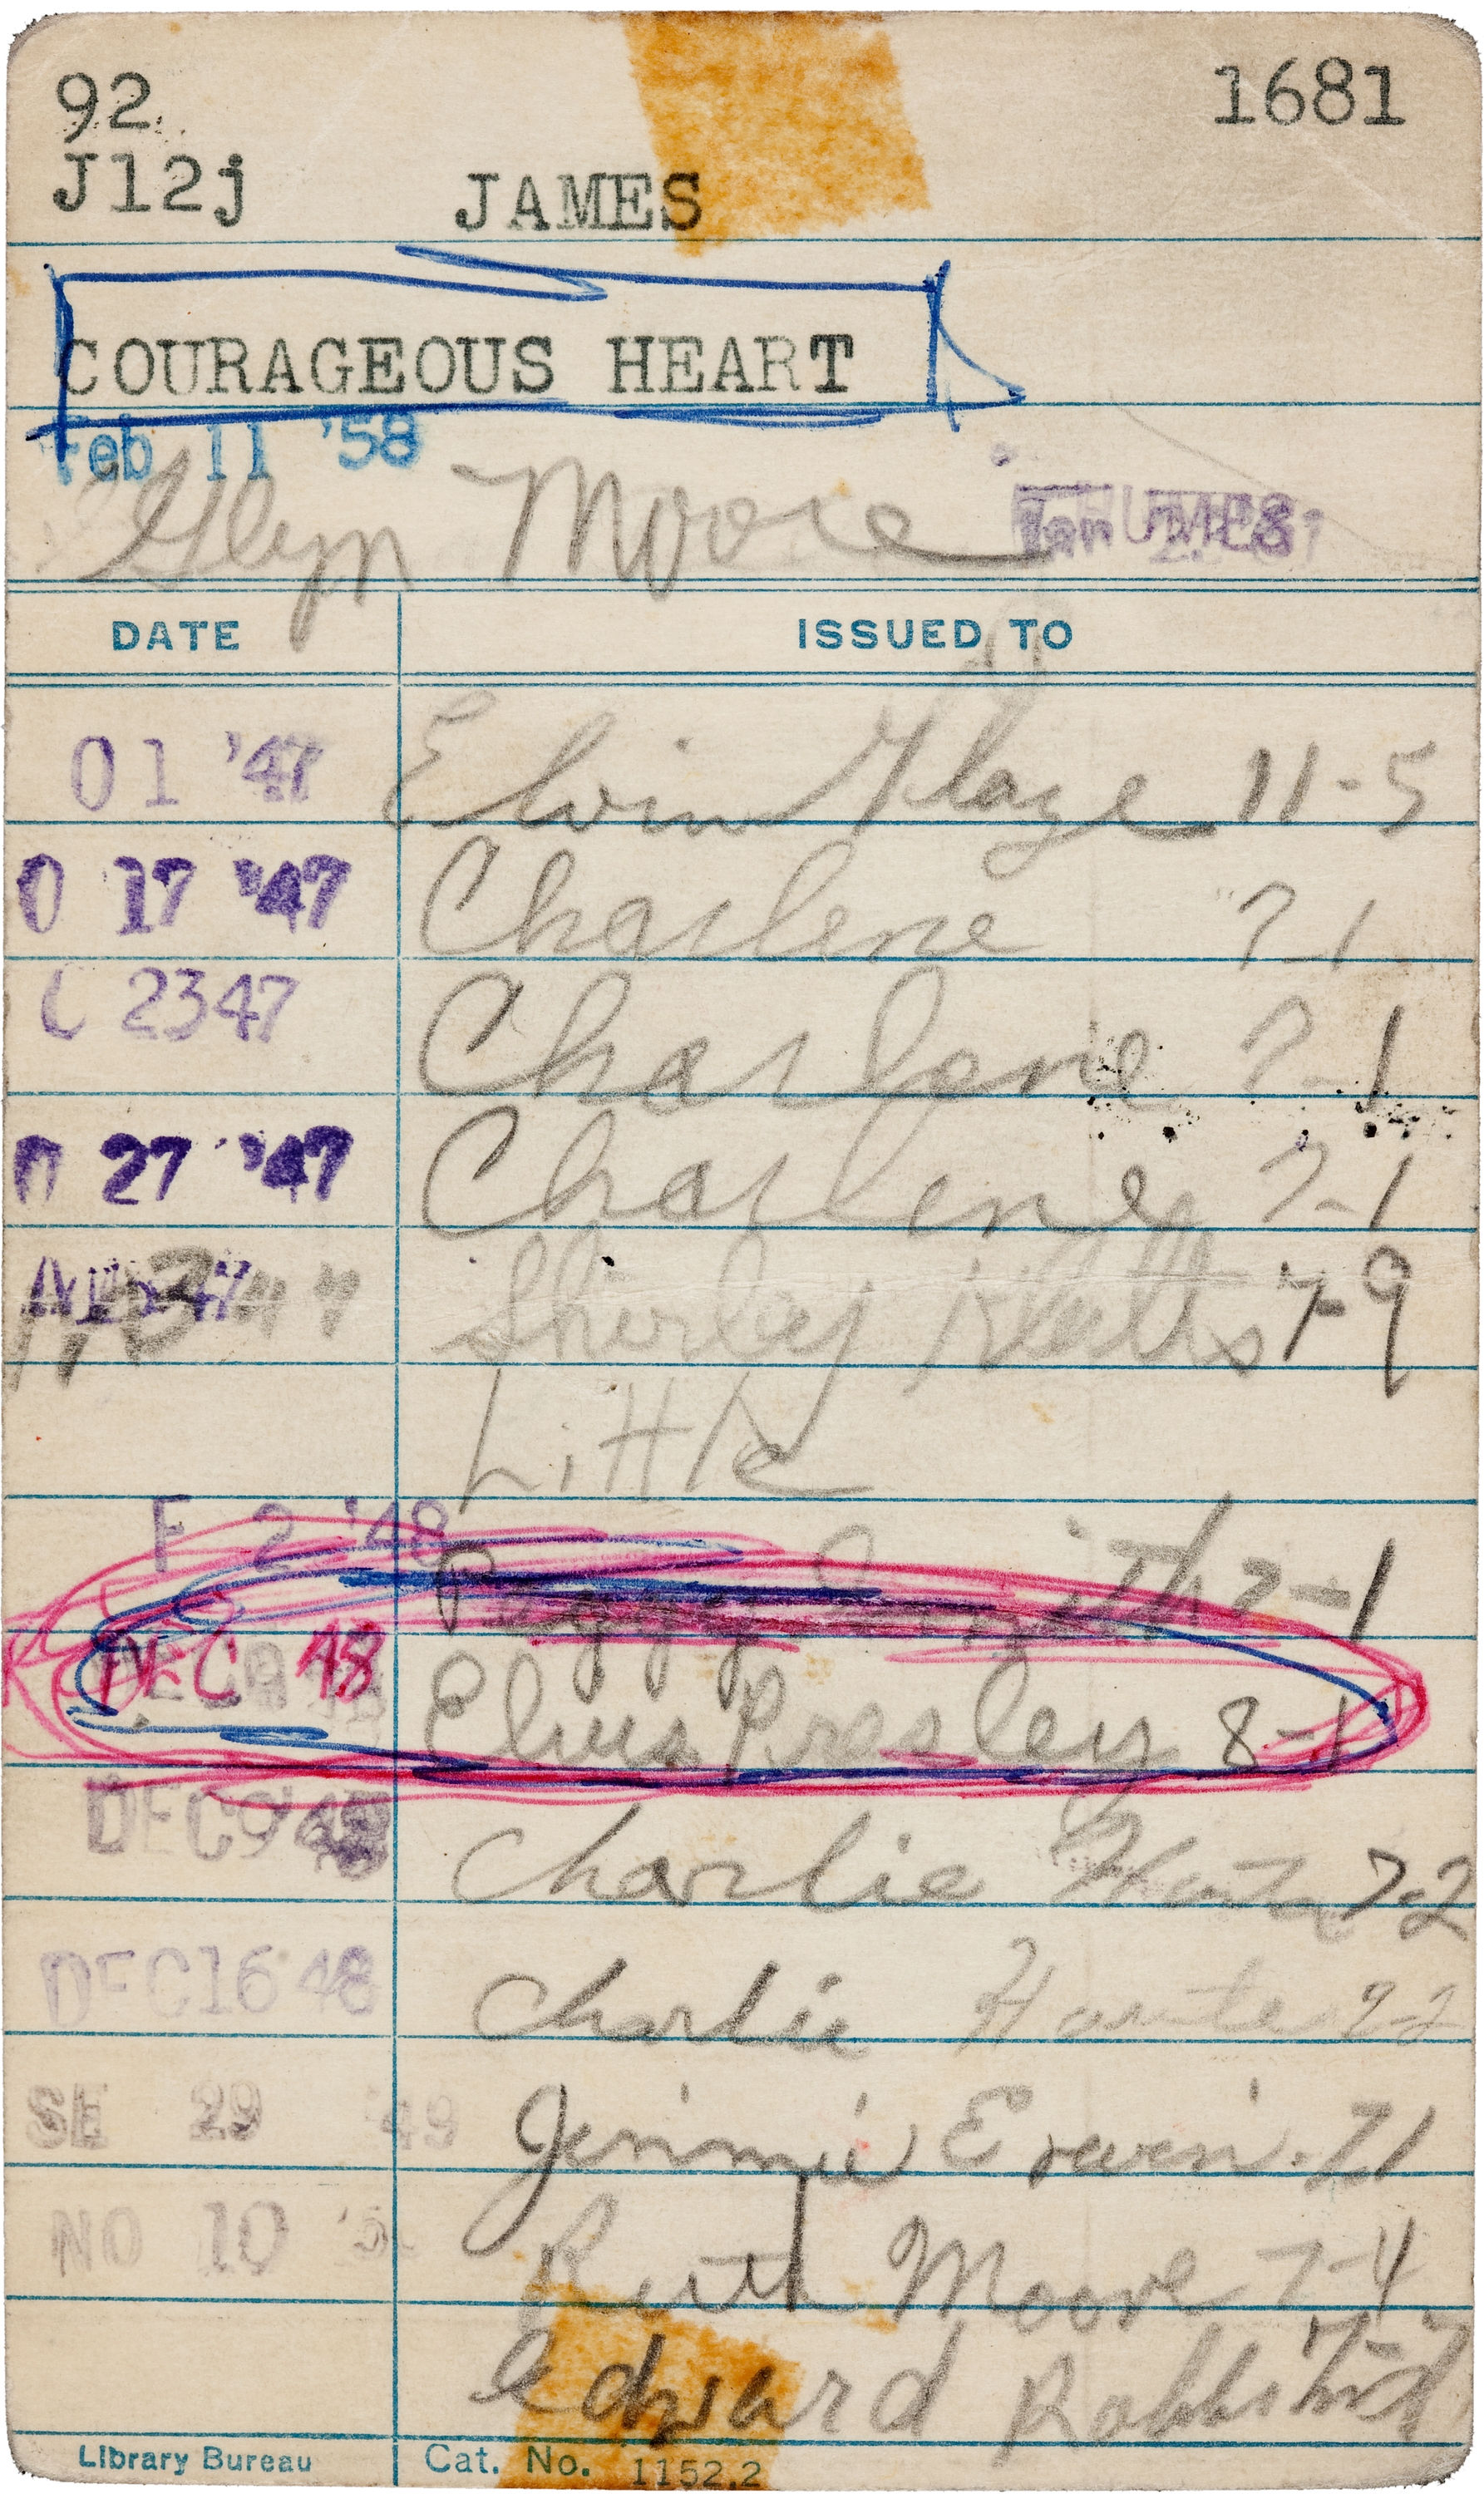 92 1681
J12j JAMES
COURAGEOUS HEART
Feb 11 '58
Glyn Moore
DATE ISSUED TO
O 1 '47 Elvin Glaze 11-5
O 17 '47 Charlene 7-1
2347 Charlene 7-1
27 '47 Charlene 7-1
Shirley 7-9
Little
F 2 '48 Peggy Smith 7-1
DEC 48 Elvis Presley 8-1
DEC 9 48 Charlie 7-2
DEC 16 48 Charlie
SE 29 '49 Jimmie Erwin 71
NO 10 Ruth Moore 7-4
Edward 7-7
Library Bureau Cat. No. 1152.2